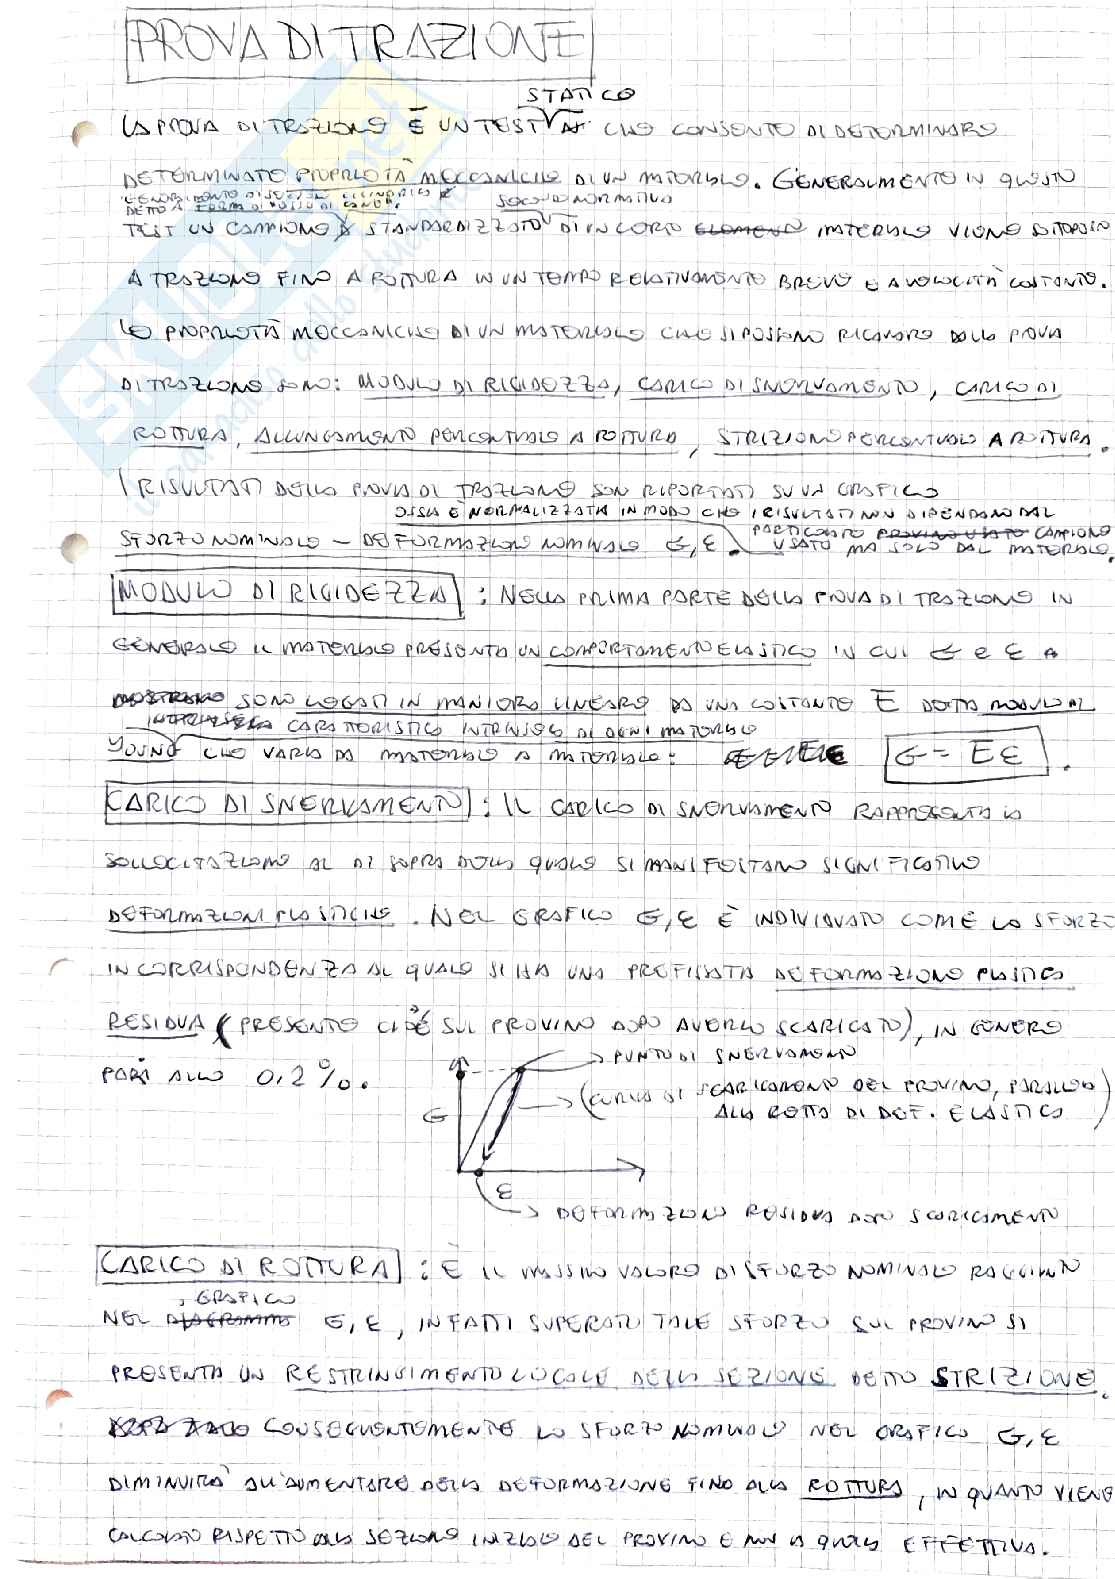 PROVA DI TRAZIONE
STATICO
LA PROVA DI TRAZIONE È UN TEST CHE CONSENTE DI DETERMINARE
DETERMINATE PROPRIETÀ MECCANICHE DI UN MATERIALE. GENERALMENTE IN QUESTO
GENERALMENTE DI SEZIONE CILINDRICA E
DETTO A FORMA DI OSSO DI CANE. SECONDO NORMATIVA
TEST UN CAMPIONE STANDARDIZZATO DI UN CERTO MATERIALE VIENE SOTTOPOSTO
A TRAZIONE FINO A ROTTURA IN UN TEMPO RELATIVAMENTE BREVE E A VELOCITÀ COSTANTE.
LE PROPRIETÀ MECCANICHE DI UN MATERIALE CHE SI POSSONO RICAVARE DALLA PROVA
DI TRAZIONE SONO: MODULO DI RIGIDEZZA, CARICO DI SNERVAMENTO, CARICO DI
ROTTURA, ALLUNGAMENTO PERCENTUALE A ROTTURA, STRIZIONE PERCENTUALE A ROTTURA.
I RISULTATI DELLA PROVA DI TRAZIONE SON RIPORTATI SU UN GRAFICO
OSSIA È NORMALIZZATA IN MODO CHE I RISULTATI NON DIPENDANO DAL
PARTICOLARE PROVINO USATO CAMPIONE
SFORZO NOMINALE - DEFORMAZIONE NOMINALE σ, ε. USATO MA SOLO DAL MATERIALE.
MODULO DI RIGIDEZZA : NELLA PRIMA PARTE DELLA PROVA DI TRAZIONE IN
GENERALE IL MATERIALE PRESENTA UN COMPORTAMENTO ELASTICO IN CUI σ e ε A
MOSTRANO SONO LEGATI IN MANIERA LINEARE DA UNA COSTANTE E DETTA MODULO DI
INTRINSECA CARATTERISTICA INTRINSECA DI OGNI MATERIALE
YOUNG CHE VARIA DA MATERIALE A MATERIALE: σ = Eε.
CARICO DI SNERVAMENTO : IL CARICO DI SNERVAMENTO RAPPRESENTA LA
SOLLECITAZIONE AL DI SOPRA DELLA QUALE SI MANIFESTANO SIGNIFICATIVE
DEFORMAZIONI PLASTICHE. NEL GRAFICO σ, ε È INDIVIDUATO COME LO SFORZO
IN CORRISPONDENZA AL QUALE SI HA UNA PREFISSATA DEFORMAZIONE PLASTICA
RESIDUA (PRESENTE CIOÈ SUL PROVINO DOPO AVERLO SCARICATO), IN GENERE
PARI ALLO 0,2%.
→ PUNTO DI SNERVAMENTO
→ (CURVA DI SCARICAMENTO DEL PROVINO, PARALLELA
ALLA RETTA DI DEF. ELASTICA)
σ
ε
→ DEFORMAZIONE RESIDUA DOPO SCARICAMENTO
CARICO DI ROTTURA : È IL MASSIMO VALORE DI SFORZO NOMINALE RAGGIUNTO
GRAFICO
NEL DIAGRAMMA σ, ε, INFATTI SUPERATO TALE SFORZO SUL PROVINO SI
PRESENTA UN RESTRINGIMENTO LOCALE DELLA SEZIONE DETTO STRIZIONE.
CONSEGUENTEMENTE LO SFORZO NOMINALE NEL GRAFICO σ, ε
DIMINUIRÀ ALL'AUMENTARE DELLA DEFORMAZIONE FINO ALLA ROTTURA, IN QUANTO VIENE
CALCOLATO RISPETTO ALLA SEZIONE INIZIALE DEL PROVINO E NON A QUELLA EFFETTIVA.